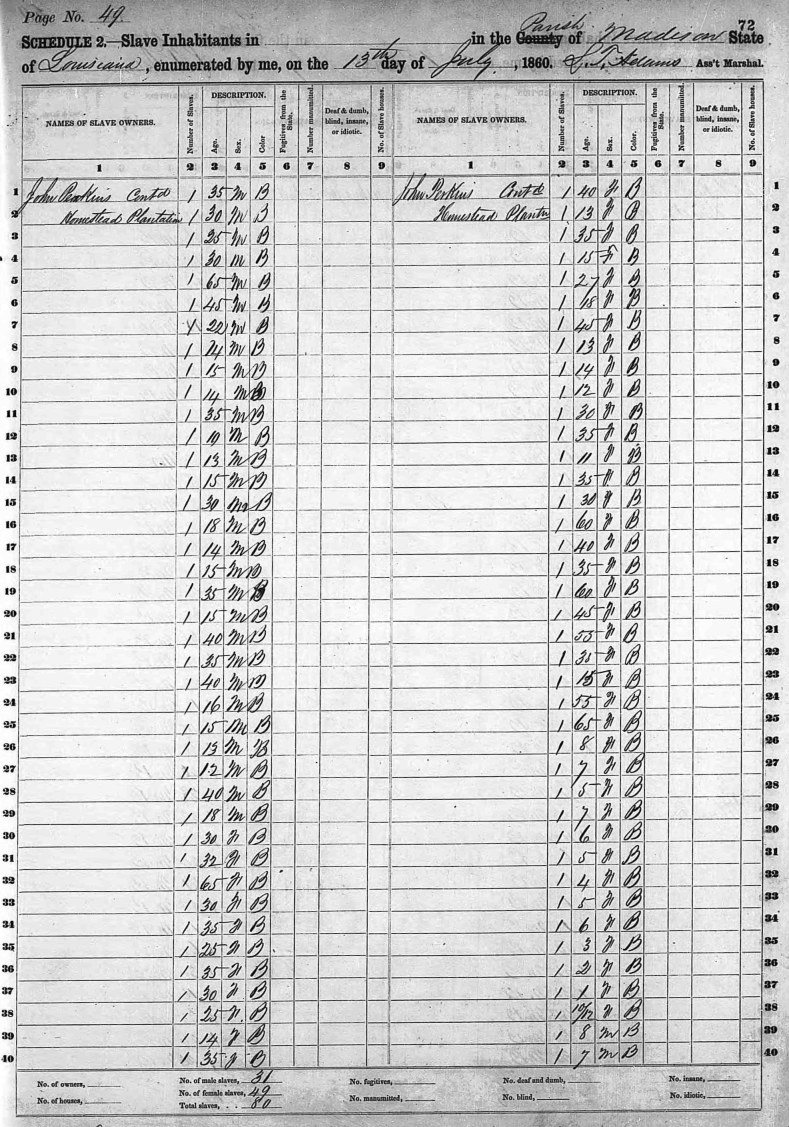 Page No. 49
72
SCHEDULE 2.—Slave Inhabitants in in the County Parish of Madison State
of Louisiana, enumerated by me, on the 13th day of July, 1860. Ass't Marshal.
NAMES OF SLAVE OWNERS. Number of Slaves. DESCRIPTION. Age. Sex. Color. Fugitives from the State. Number manumitted. Deaf & dumb, blind, insane, or idiotic. No. of Slave houses. NAMES OF SLAVE OWNERS. Number of Slaves. DESCRIPTION. Age. Sex. Color. Fugitives from the State. Number manumitted. Deaf & dumb, blind, insane, or idiotic. No. of Slave houses.
1 2 3 4 5 6 7 8 9 1 2 3 4 5 6 7 8 9
1 John Perkins Contd 1 35 M B John Perkins Contd 1 40 F B 1
2 Homestead Plantation 1 30 M B Homestead Plantn 1 13 F B 2
3 1 25 M B 1 35 F B 3
4 1 30 M B 1 15 F B 4
5 1 65 M B 1 27 F B 5
6 1 45 M B 1 18 F B 6
7 1 22 M B 1 45 F B 7
8 1 14 M B 1 13 F B 8
9 1 15 M B 1 14 F B 9
10 1 14 M B 1 12 F B 10
11 1 35 M B 1 30 F B 11
12 1 19 M B 1 35 F B 12
13 1 13 M B 1 11 F B 13
14 1 15 M B 1 35 F B 14
15 1 30 M B 1 30 F B 15
16 1 18 M B 1 60 F B 16
17 1 14 M B 1 40 F B 17
18 1 15 M B 1 35 F B 18
19 1 35 M B 1 60 F B 19
20 1 15 M B 1 45 F B 20
21 1 40 M B 1 55 F B 21
22 1 35 M B 1 35 F B 22
23 1 40 M B 1 F B 23
24 1 16 M B 1 55 F B 24
25 1 15 M B 1 65 F B 25
26 1 13 M B 1 8 F B 26
27 1 12 M B 1 7 F B 27
28 1 40 M B 1 5 F B 28
29 1 18 M B 1 7 F B 29
30 1 30 F B 1 6 F B 30
31 1 32 F B 1 5 F B 31
32 1 65 F B 1 4 F B 32
33 1 30 F B 1 5 F B 33
34 1 35 F B 1 6 F B 34
35 1 25 F B 1 3 F B 35
36 1 35 F B 1 2 F B 36
37 1 30 F B 1 1 F B 37
38 1 25 F B 1 10/12 F B 38
39 1 14 F B 1 8 M B 39
40 1 35 F B 1 7 M B 40
No. of owners, No. of male slaves, 31 No. fugitives, No. of deaf and dumb, No. insane,
No. of houses, No. of female slaves, 49 No. manumitted, No. blind, No. idiotic,
Total slaves, 80